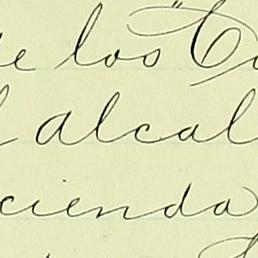 e los
alcal
cienda